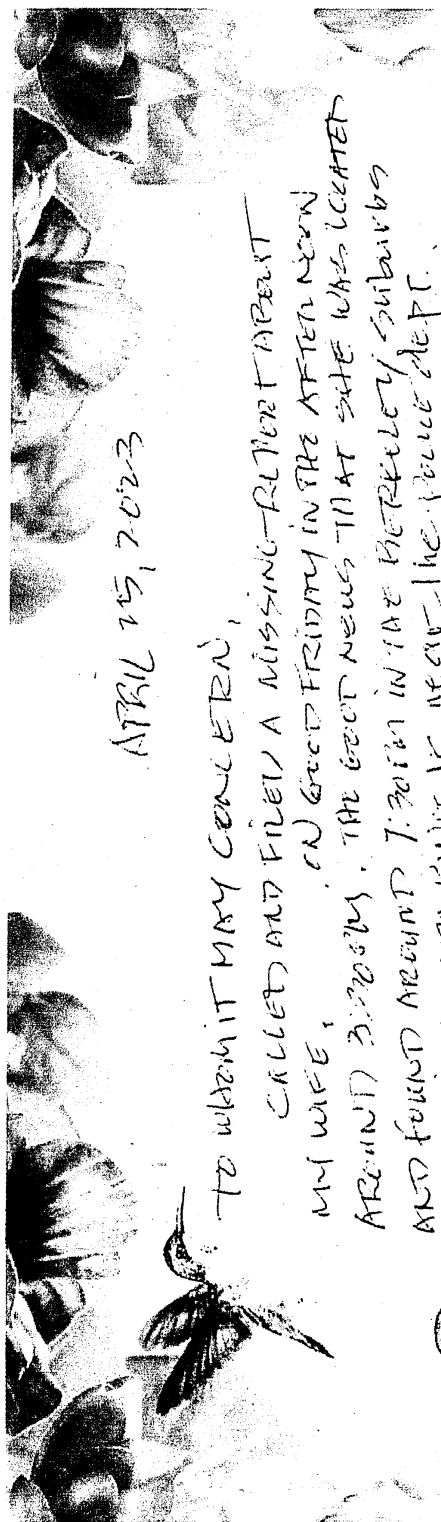 APRIL 25, 2023
TO WHOM IT MAY CONCERN,
CALLED AND FILED A MISSING-REPORT ABOUT
MY WIFE, ON GOOD FRIDAY IN THE AFTERNOON
AROUND 3:30PM. THE GOOD NEWS THAT SHE WAS LOCATED
AND FOUND AROUND 7:30PM IN THE BERKELEY suburbs
the police dept.